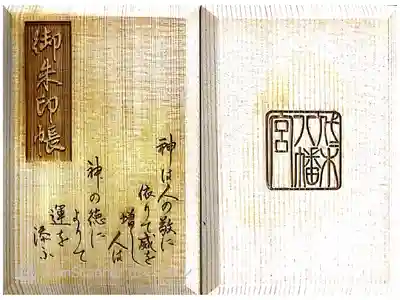 御朱印帳
神は人の敬に
依りて威を
増し人は
神の徳に
よりて
運を
添ふ
八幡
宮